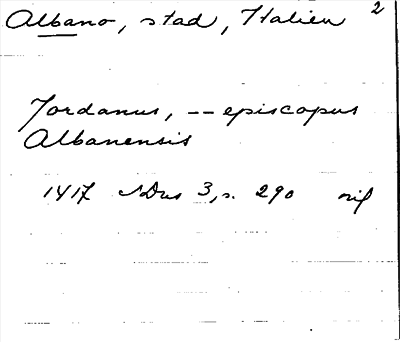 Albano, stad, Italien 2
Jordanus, -- episcopus
Albanensis
1417 SDns 3, s. 290